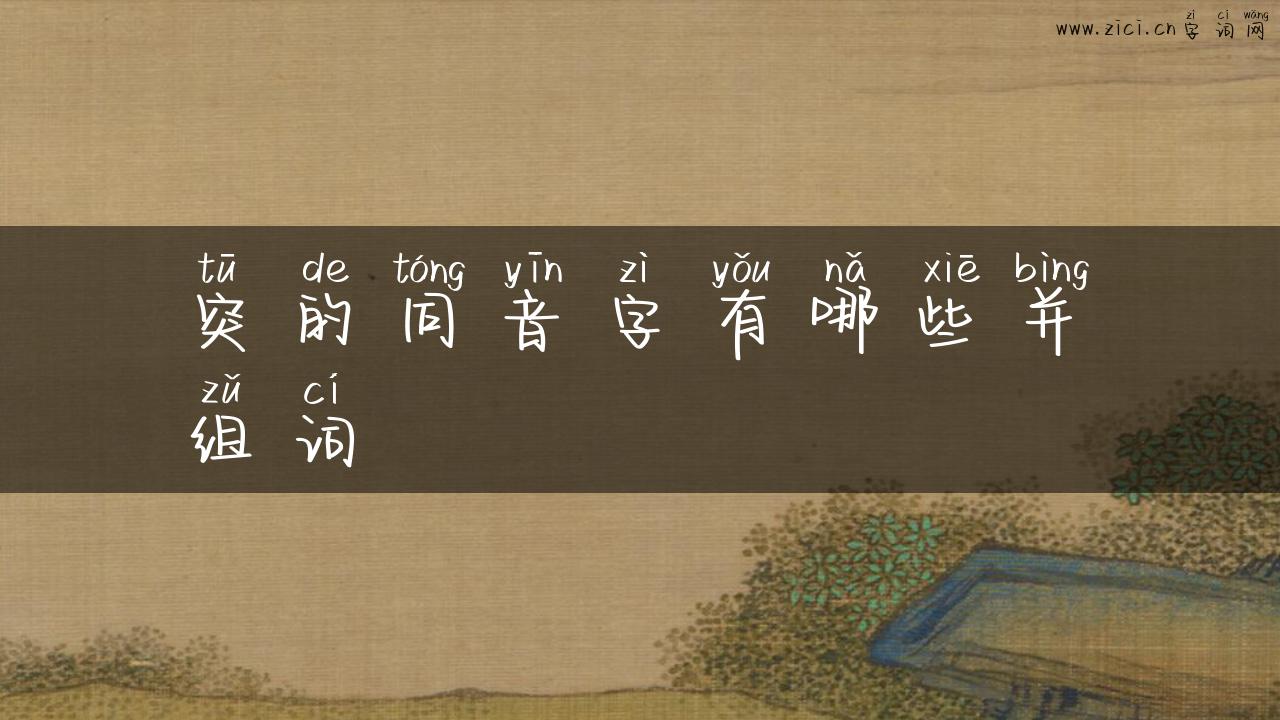 zì cí wǎng
www.zici.cn 字 词 网
tū de tóng yīn zì yǒu nǎ xiē bìng
突 的 同 音 字 有 哪 些 并
zǔ cí
组 词